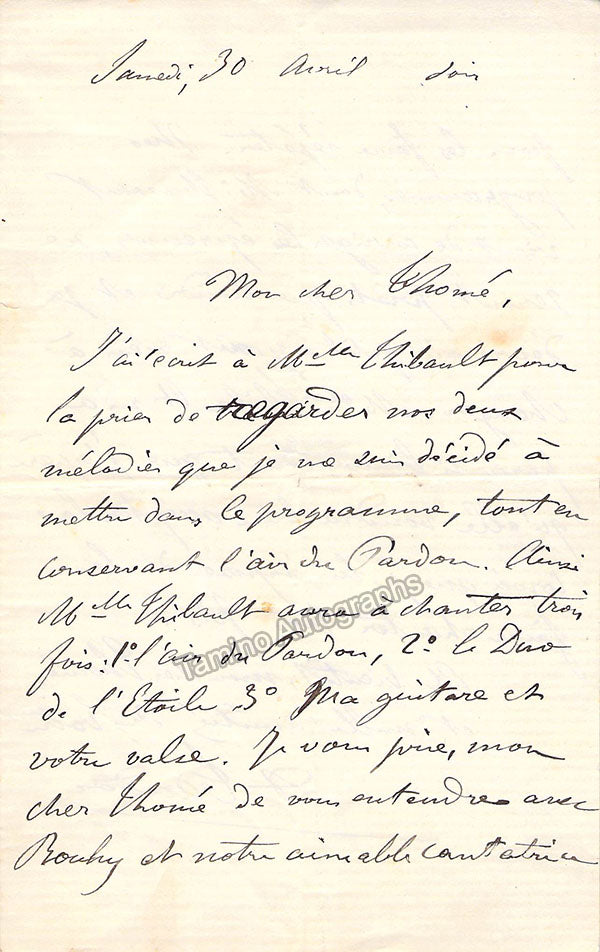 Samedi, 30 Avril soir
Mon cher Thomé,
J'ai écrit à Melle Thibault pour
la prier de regarder nos deux
mélodies que je me suis décidé à
mettre dans le programme, tout en
conservant l'air du Pardon. Ainsi
Melle Thibault aura à chanter trois
fois: 1º l'air du Pardon, 2º le Duo
de l'Etoile 3º Ma guitare et
votre valse. Je vous prie, mon
cher Thomé de vous entendre avec
Bouhy et notre aimable cantatrice
Tamino Autographs